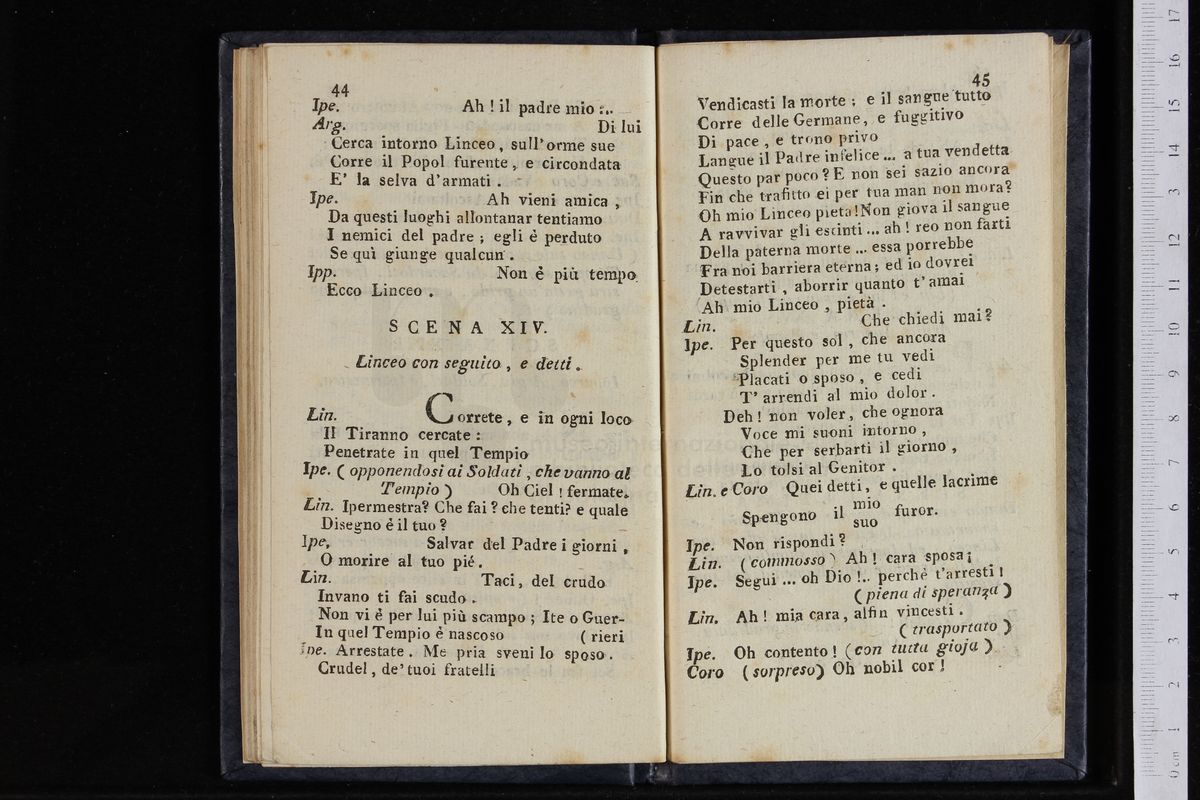 44
Ipe. Ah ! il padre mio :..
Arg. Di lui
Cerca intorno Linceo, sull'orme sue
Corre il Popol furente, e circondata
E' la selva d'armati .
Ipe. Ah vieni amica ,
Da questi luoghi allontanar tentiamo
I nemici del padre ; egli è perduto
Se quì giunge qualcun .
Ipp. Non è più tempo
Ecco Linceo .
SCENA XIV.
Linceo con seguito , e detti .
Lin. Correte, e in ogni loco
Il Tiranno cercate :
Penetrate in quel Tempio
Ipe. ( opponendosi ai Soldati , che vanno al
Tempio ) Oh Ciel ! fermate.
Lin. Ipermestra? Che fai ? che tenti? e quale
Disegno è il tuo ?
Ipe, Salvar del Padre i giorni ,
O morire al tuo piè.
Lin. Taci, del crudo
Invano ti fai scudo .
Non vi è per lui più scampo ; Ite o Guer-
In quel Tempio è nascoso ( rieri
Ipe. Arrestate . Me pria sveni lo sposo .
Crudel, de' tuoi fratelli
45
Vendicasti la morte ; e il sangue tutto
Corre delle Germane, e fuggitivo
Di pace , e trono privo
Langue il Padre infelice ... a tua vendetta
Questo par poco ? E non sei sazio ancora
Fin che trafitto ei per tua man non mora?
Oh mio Linceo pietà! Non giova il sangue
A ravvivar gli estinti ... ah ! reo non farti
Della paterna morte ... essa porrebbe
Fra noi barriera eterna; ed io dovrei
Detestarti , aborrir quanto t' amai
Ah mio Linceo , pietà .
Lin. Che chiedi mai?
Ipe. Per questo sol , che ancora
Splender per me tu vedi
Placati o sposo , e cedi
T' arrendi al mio dolor .
Deh ! non voler, che ognora
Voce mi suoni intorno ,
Che per serbarti il giorno ,
Lo tolsi al Genitor .
Lin. e Coro Quei detti, e quelle lacrime
Spengono il mio furor.
suo
Ipe. Non rispondi ?
Lin. ( commosso ) Ah ! cara sposa;
Ipe. Segui ... oh Dio !.. perchè t'arresti !
( piena di speranza )
Lin. Ah ! mia cara, alfin vincesti .
( trasportato )
Ipe. Oh contento ! ( con tutta gioja )
Coro ( sorpreso) Oh nobil cor !
0 cm 1 2 3 4 5 6 7 8 9 10 11 12 13 14 15 16 17